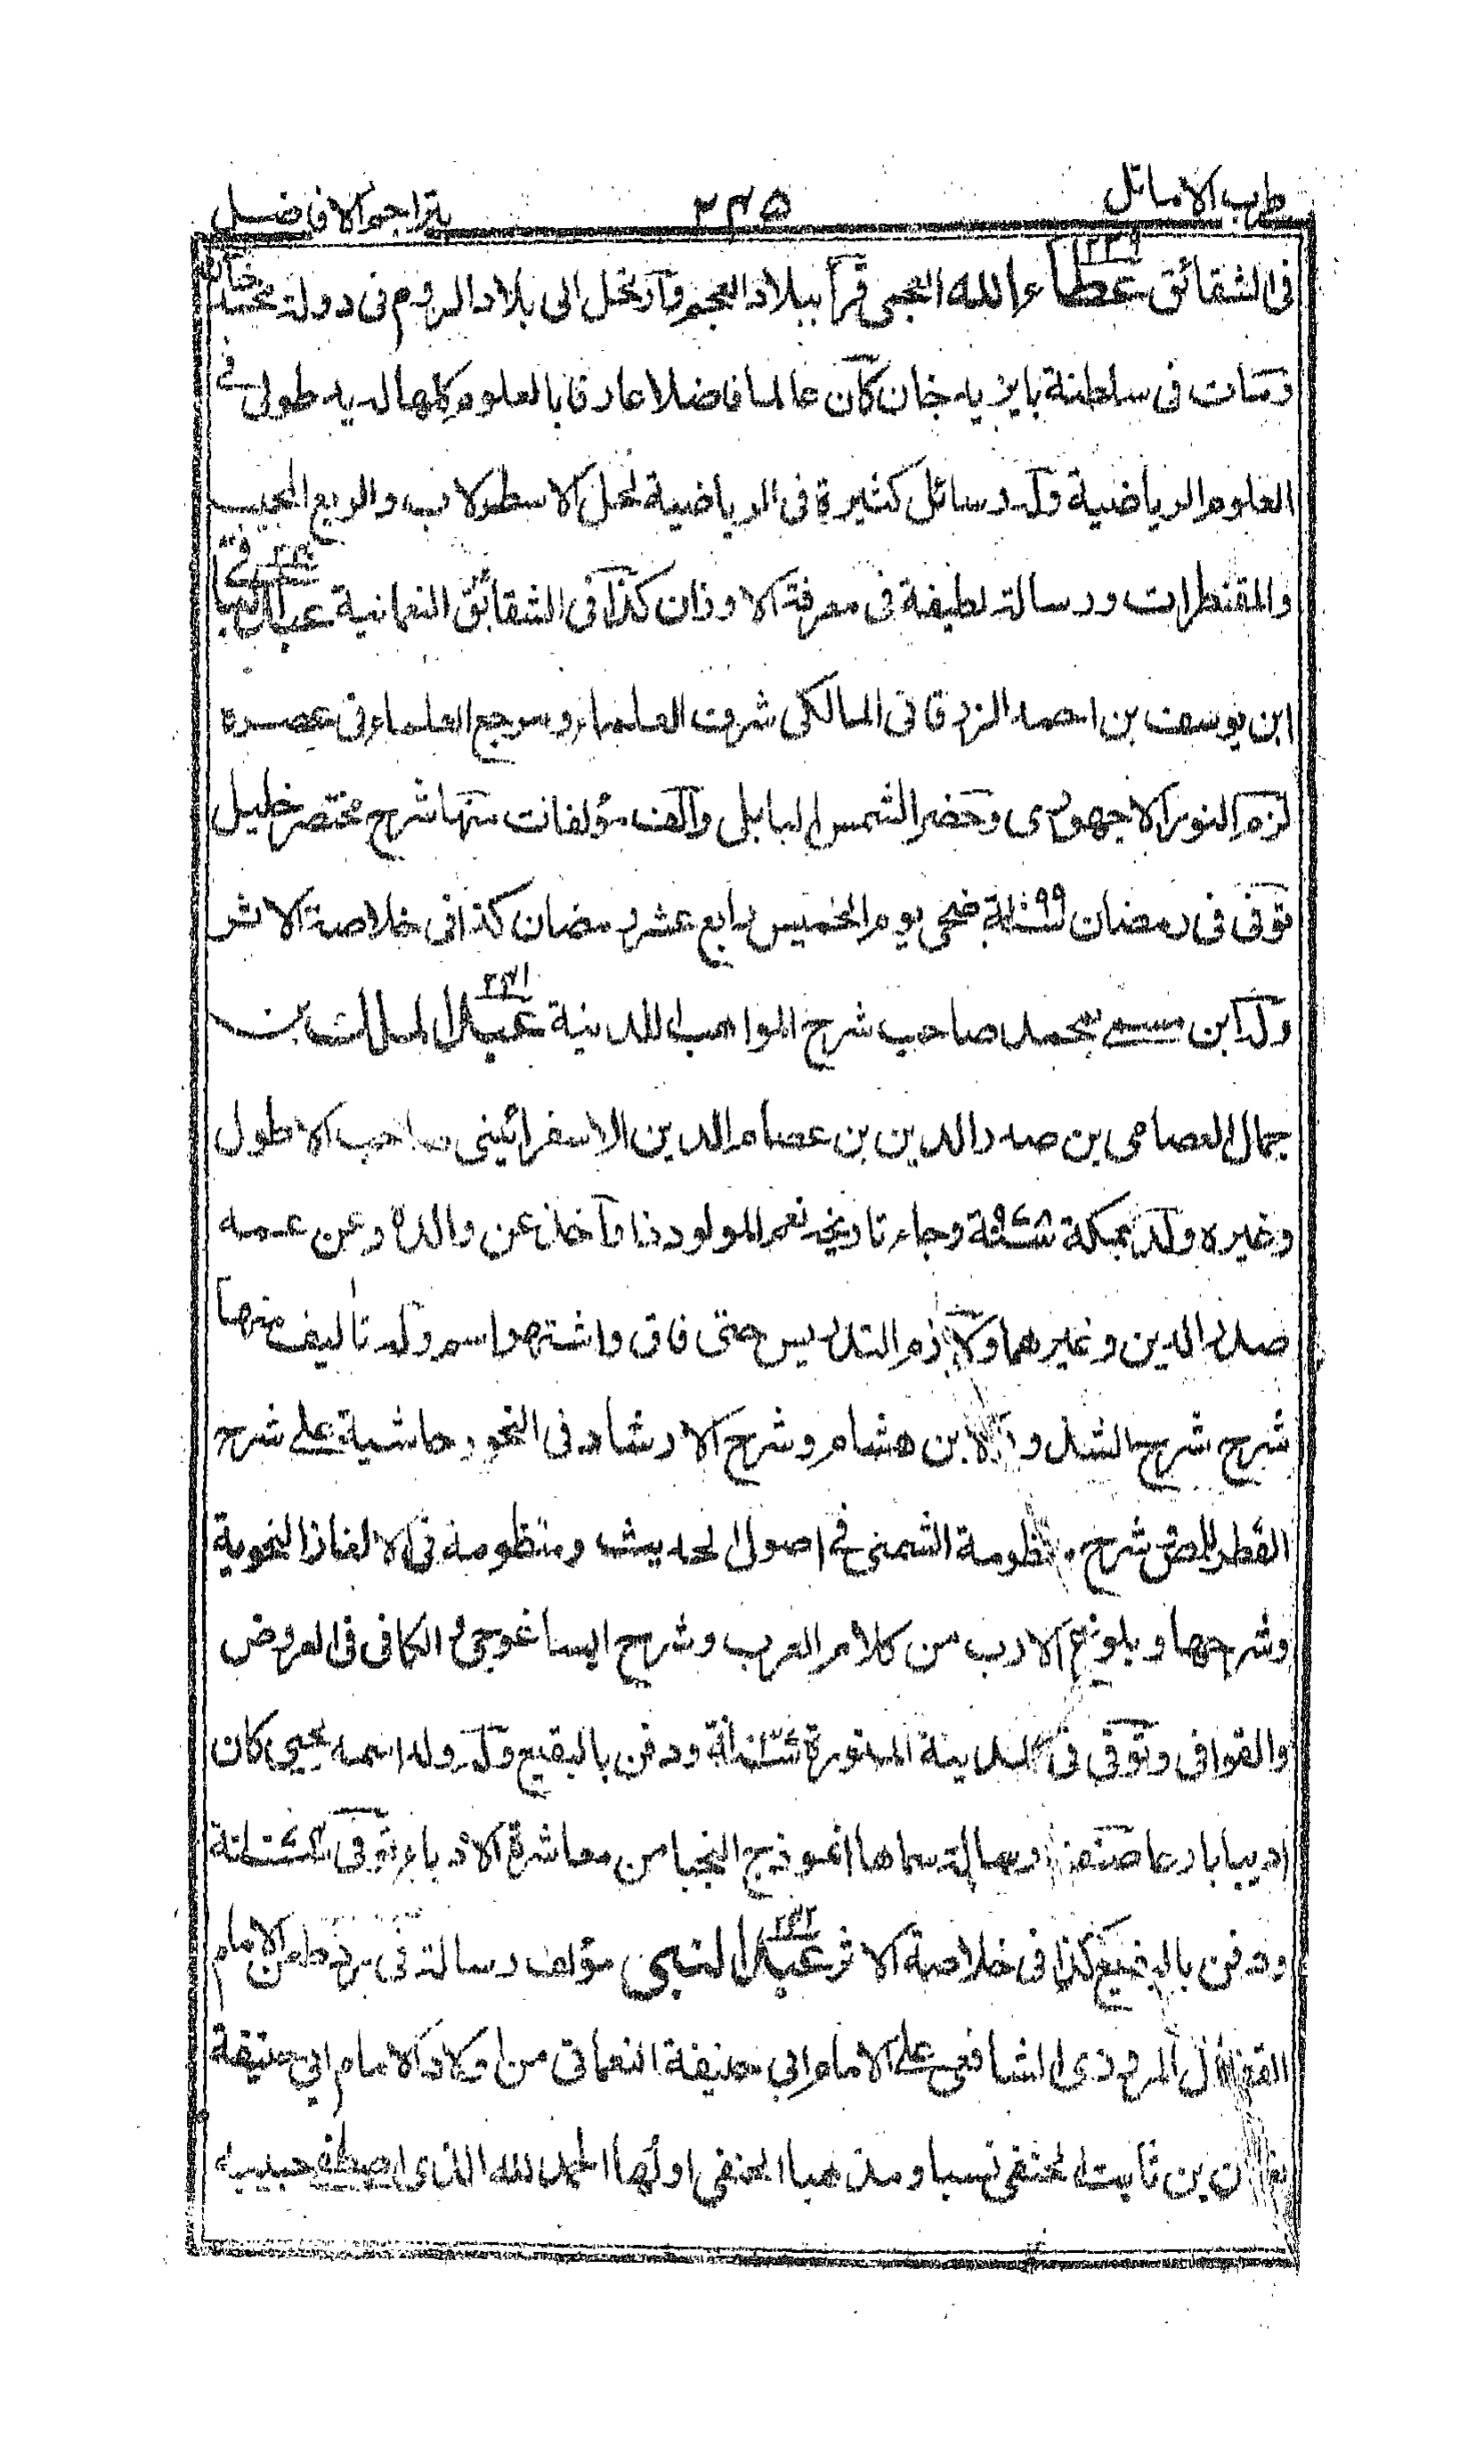 طرب الاماثل ٢٤٥ بتراجم الافاضل
فى الشقائق عطاء الله العجمى قرأ ببلاد العجم وارتحل الى بلاد الروم فى دولة محمد خان
ومات فى سلطنة بايزيد خان كان عالما فاضلا عارفا بالعلوم كلها له يد طولى فى
العلوم الرياضية وله رسائل كثيرة فى الرياضية لحل الاسطرلاب والربع المجيب
والمقنطرات ورسالة لطيفة فى معرفة الاوزان كذا فى الشقائق النعمانية ٢٤٠ عبد الباقى
ابن يوسف بن احمد الزرقانى المالكى شرف العلماء ومرجع العلماء فى عصره
لزم النور الاجهورى وحضر الشمس البابلى والف مؤلفات منها شرح مختصر خليل
توفى فى رمضان ١٠٩٩ ضحى يوم الخميس رابع عشر رمضان كذا فى خلاصة الاثر
وله ابن مسمى بمحمد صاحب شرح المواهب اللدنية ٢٤١ عبد الملك بن
جمال العصامى بن صدر الدين بن عصام الدين الاسفرائينى صاحب الاطول
وغيره ولد بمكة ٩٧٨ وجاء تاريخه نعم المولود ذا واخذ عن والده وعن عمه
صدر الدين وغيرهما ولازم التدريس حتى فاق واشتهر اسمه وله تاليف منها
شرح شرح الشذور لابن هشام وشرح الارشاد فى النحو وحاشية على شرح
القطر للمص شرح منظومة الشمنى فى اصول الحديث ومنظومة فى الالغاز النحوية
وشرحها وبلوغ الادب من كلام العرب وشرح ايساغوجى و الكافى فى العروض
والقوافى وتوفى فى المدينة المنورة ١٠٣٧ ودفن بالبقيع وله ولد اسمه يحيى كان
اديبا بارعا صنف رسالة سماها انموذج النجبا من معاشرة الادباء توفى
ودفن بالبقيع كذا فى خلاصة الاثر ٢٤٢ عبد النبى مؤلف رسالة فى رد طعن الامام
القفال المروزى الشافعى على الامام ابى حنيفة النعمانى من اولاد الامام ابى حنيفة
نعمان بن ثابت الحنفى نسبا ومذهبا الحنفى اولها الحمد لله الذى اصطفى حبيبه